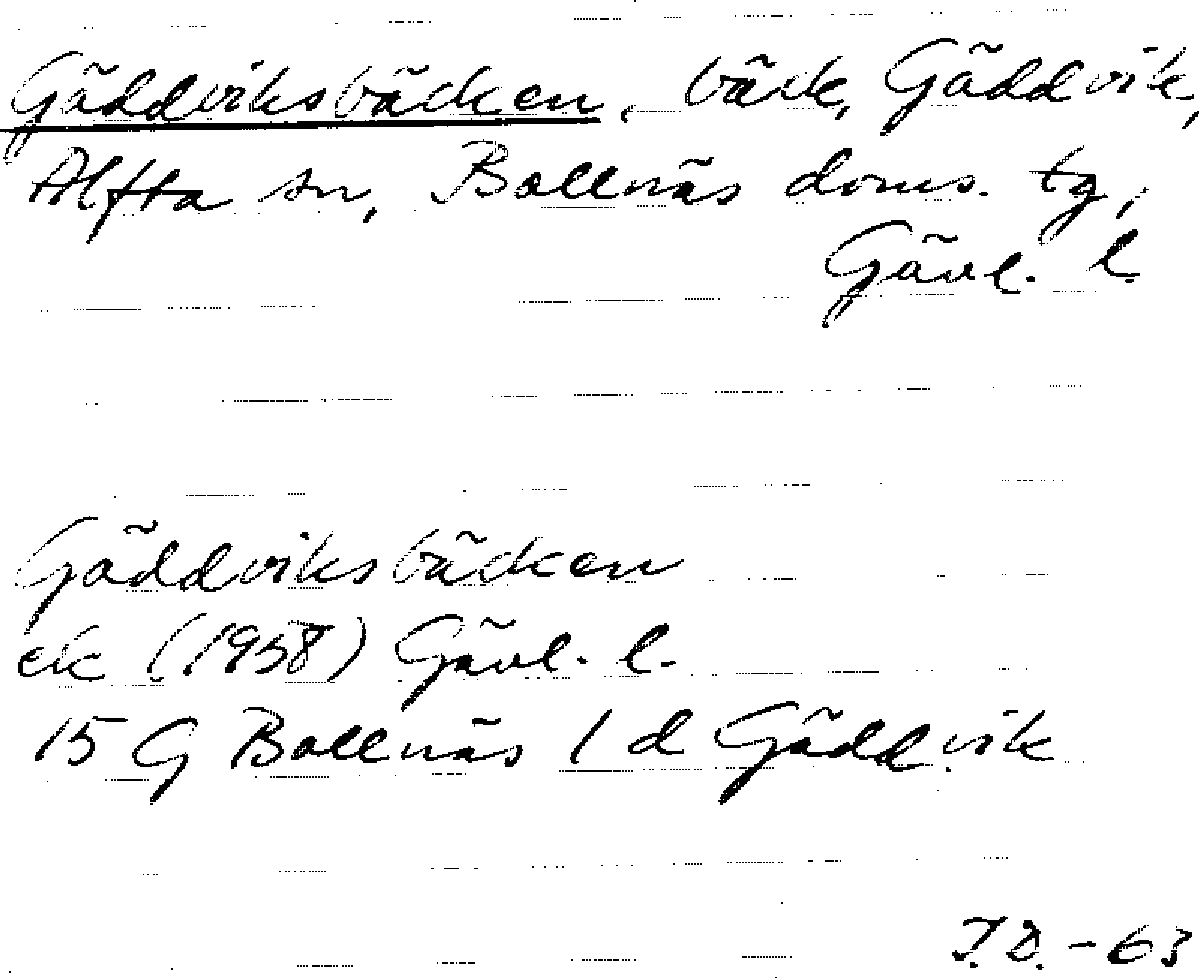 Gäddviksbäcken, bäck, Gäddvik,
Alfta sn, Bollnäs doms. tg,
Gävl. l.
Gäddviksbäcken
ek (1958) Gävl. l.
15 G Bollnäs 1 d Gäddvik
-63